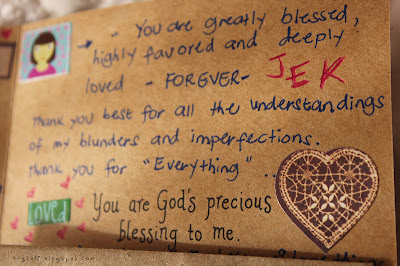 You are greatly blessed,
highly favored and deeply
loved - FOREVER -
JEK
Thank you best for all the understandings
of my blunders and imperfections.
Thank you for "Everything" ..
loved
You are God's precious
blessing to me.